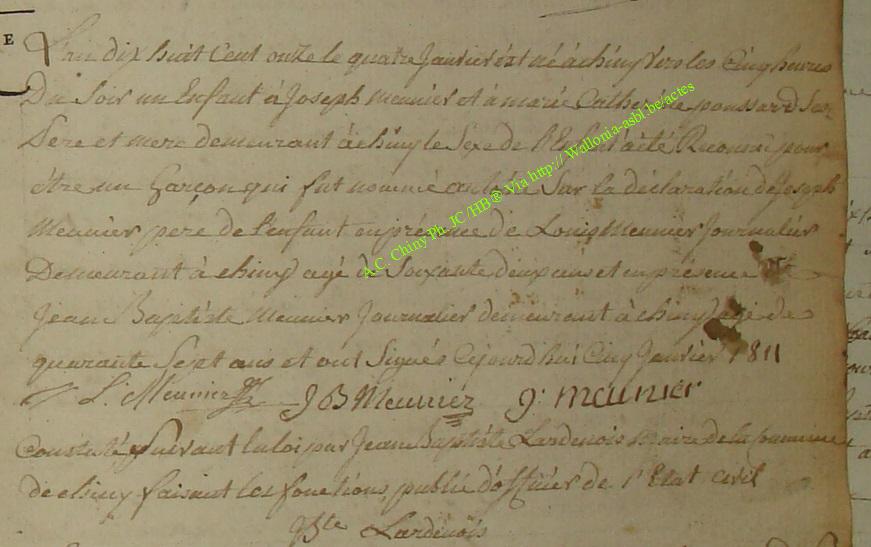 E
L'an dix huit cent onze le quatre Janvier est né à chiny vers les Cinq heures
Du Soir un Enfant à Joseph Meunier et à marie Cathe poussard Ses
Pere et mere demeurant à chiny le Sexe de à été Reconnu pour
être un Garçon qui fut nommé Sur la déclaration de Joseph
Meunier pere de l'enfant en présence de Louis Meunier Journalier
Demeurant à chiny agé de Soixante deux ans et en présence de
Jean Baptiste Meunier Journalier demeurant à chiny agé de
quarante Sept ans et ont Signés Cejourd'hui Cinq Janvier 1811
L. Meunier JB Meunier J. meunier
Constaté Suivant la loi par Jean Baptiste Lardenois maire de la Commune
de chiny faisant les fonctions public d'officier de l'Etat civil
JBte Lardenois
A.C. Chiny Ph. JC /HB® Via http:// Wallonia-asbl.be/actes